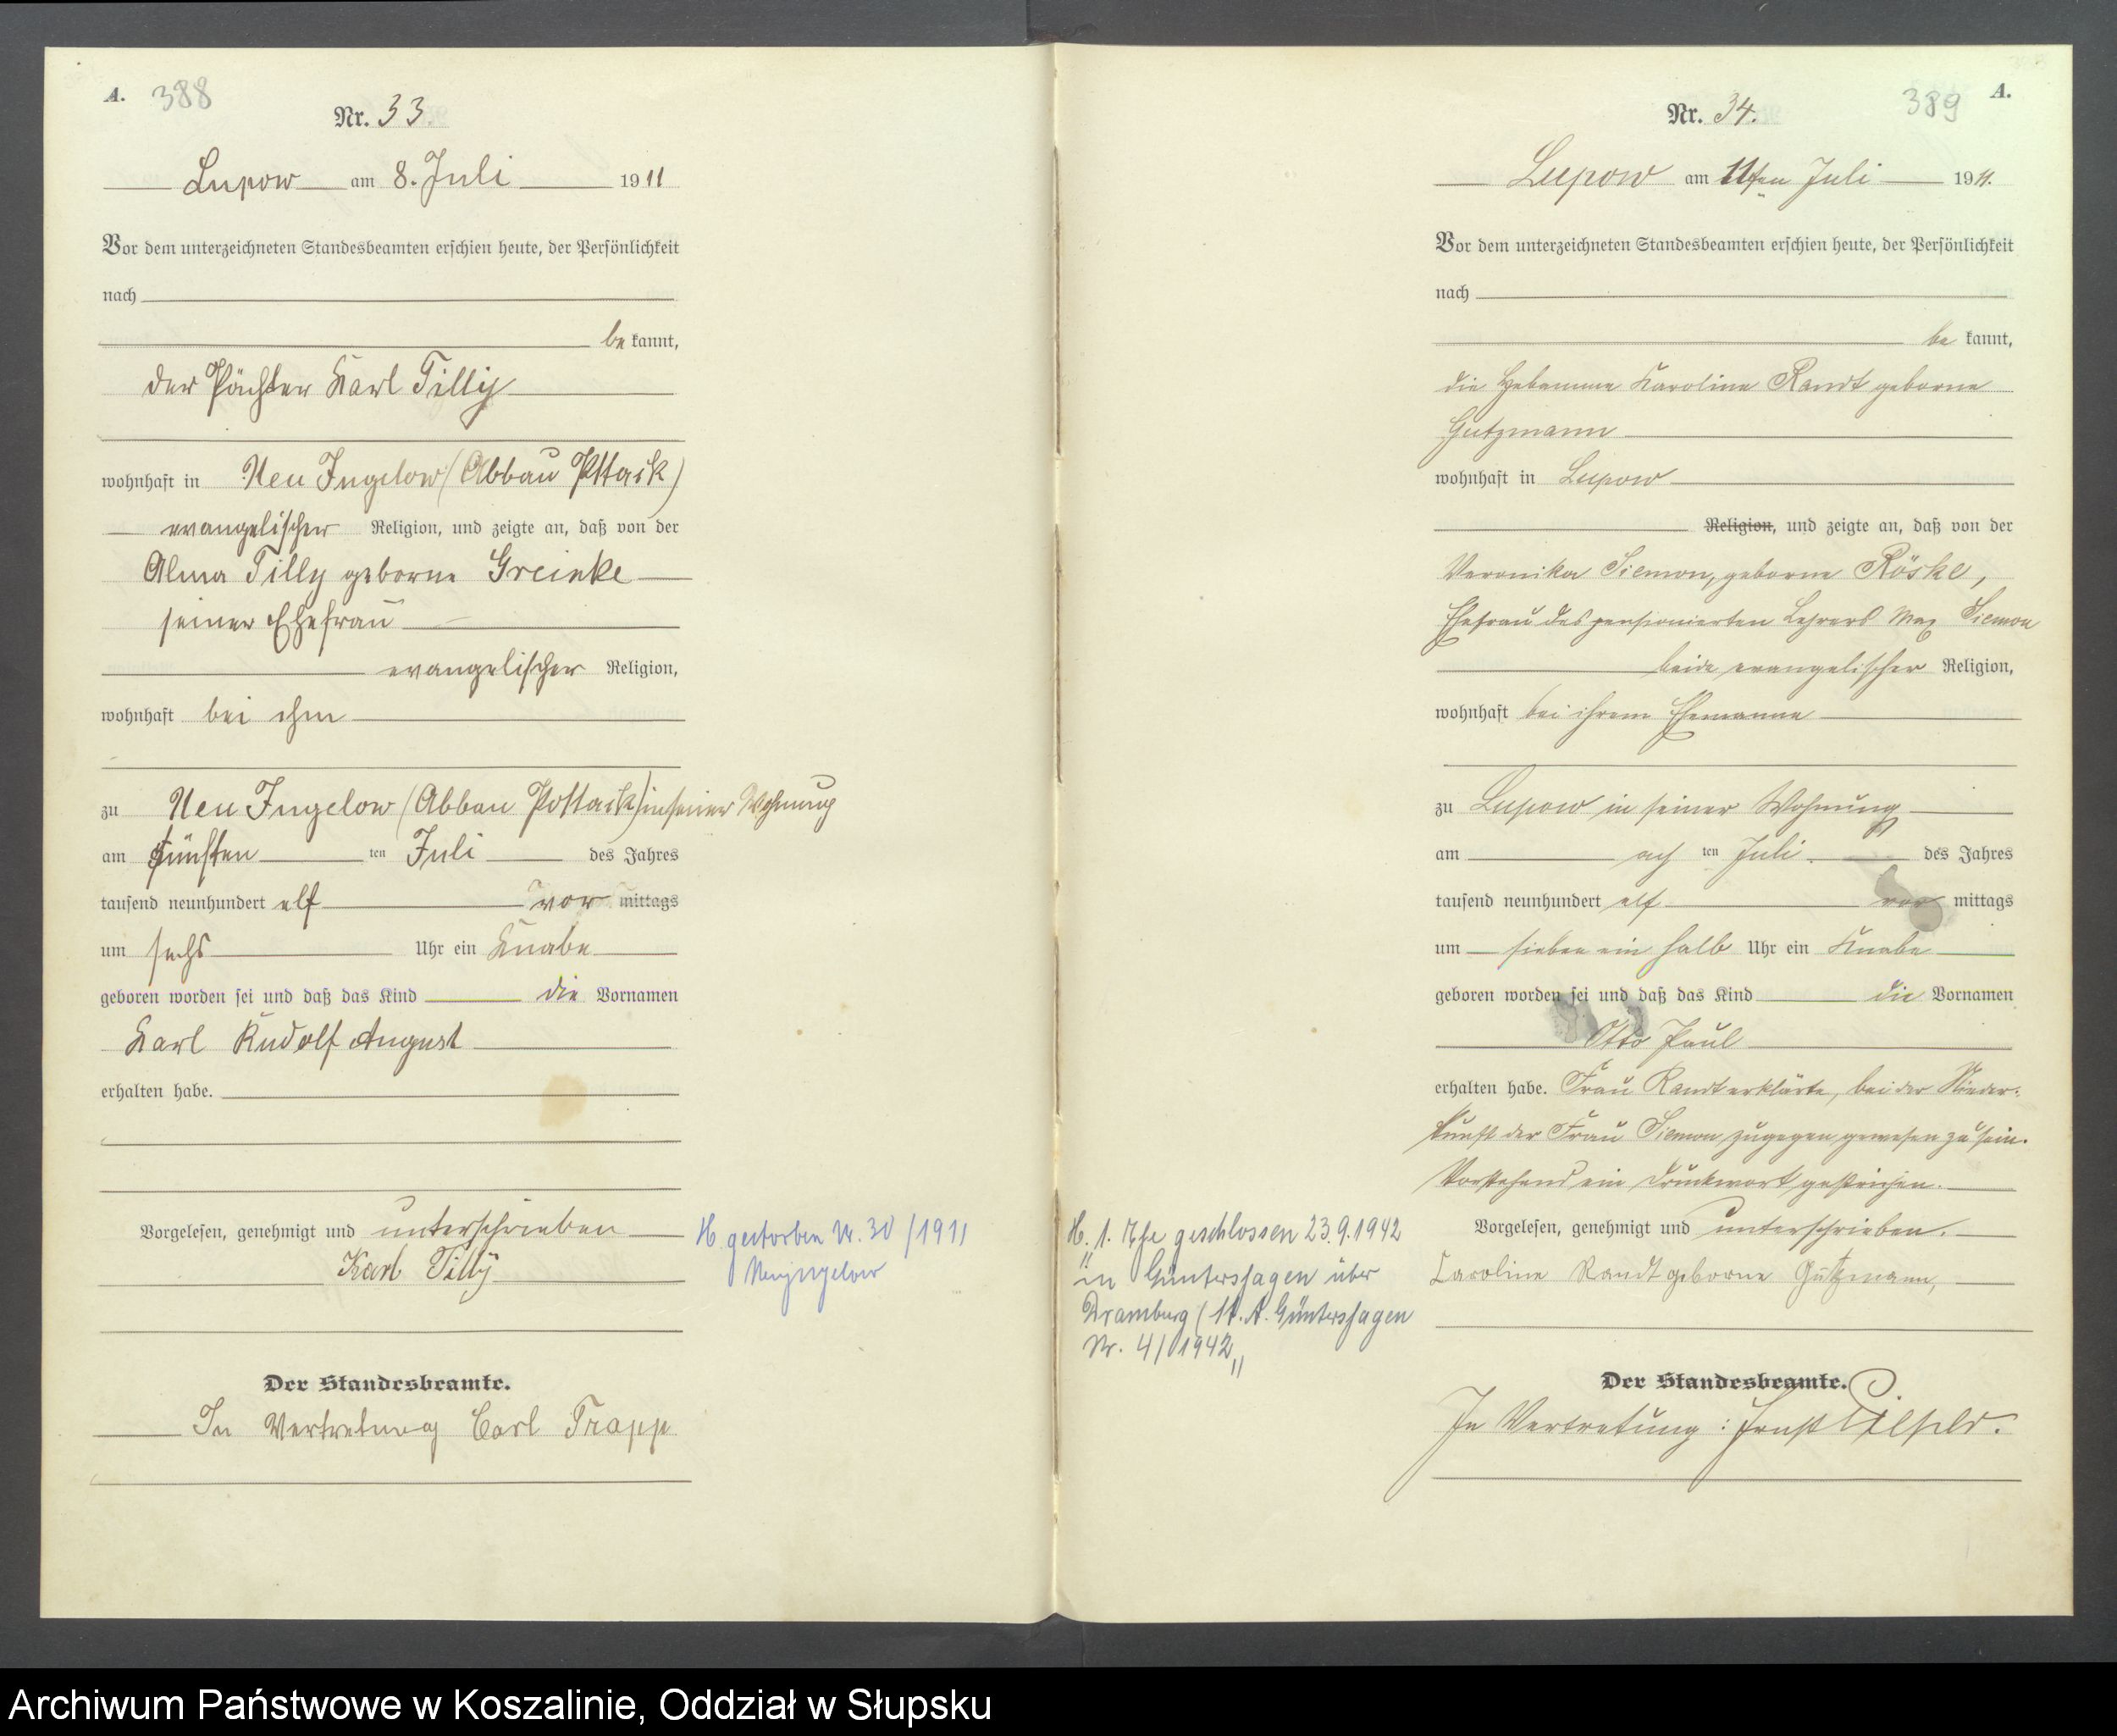 A. 388
Nr. 33
Lupow am 8. Juli 1911
Vor dem unterzeichneten Standesbeamten erschien heute, der Persönlichkeit
nach
be kannt,
der Pächter Karl Tilly
wohnhaft in Neu Jugelow (Abbau Pottack)
evangelischer Religion, und zeigte an, daß von der
Alma Tilly geborne Greinke
seiner Ehefrau
evangelischer Religion,
wohnhaft bei ihm
zu Neu Jugelow (Abbau Pottack) in seiner Wohnung
am fünften ten Juli des Jahres
tausend neunhundert elf vor mittags
um sechs Uhr ein Knabe
geboren worden sei und daß das Kind die Vornamen
Karl Rudolf August
erhalten habe.
Vorgelesen, genehmigt und unterschrieben
Karl Tilly
H. gestorben Nr. 30/1911
Neujugelow
Der Standesbeamte.
In Vertretung Carl Trapp
389 A.
Nr. 34.
Lupow am 11ten Juli 1911.
Vor dem unterzeichneten Standesbeamten erschien heute, der Persönlichkeit
nach
be kannt,
die Hebamme Karoline Randt geborne
Gutzmann
wohnhaft in Lupow
Religion, und zeigte an, daß von der
Veronika Siemon, geborne Röske,
Ehefrau des pensionierten Lehrers Max Siemon
beide evangelischer Religion,
wohnhaft bei ihrem Ehemanne
zu Lupow in seiner Wohnung
am ach ten Juli des Jahres
tausend neunhundert elf vor mittags
um sieben ein halb Uhr ein Knabe
geboren worden sei und daß das Kind die Vornamen
Otto Paul
erhalten habe. Frau Randt erklärte, bei der Nieder-
kunft der Frau Siemon zugegen gewesen zu sein.
Vorstehend ein Druckwort gestrichen.
Vorgelesen, genehmigt und unterschrieben.
Caroline Randt geborne Gutzmann,
H. 1. Ehe geschlossen 23.9.1942
in Güntershagen über
Dramburg (St. A. Güntershagen
Nr. 4/1942
Der Standesbeamte.
In Vertretung: Ernst
Archiwum Państwowe w Koszalinie, Oddział w Słupsku